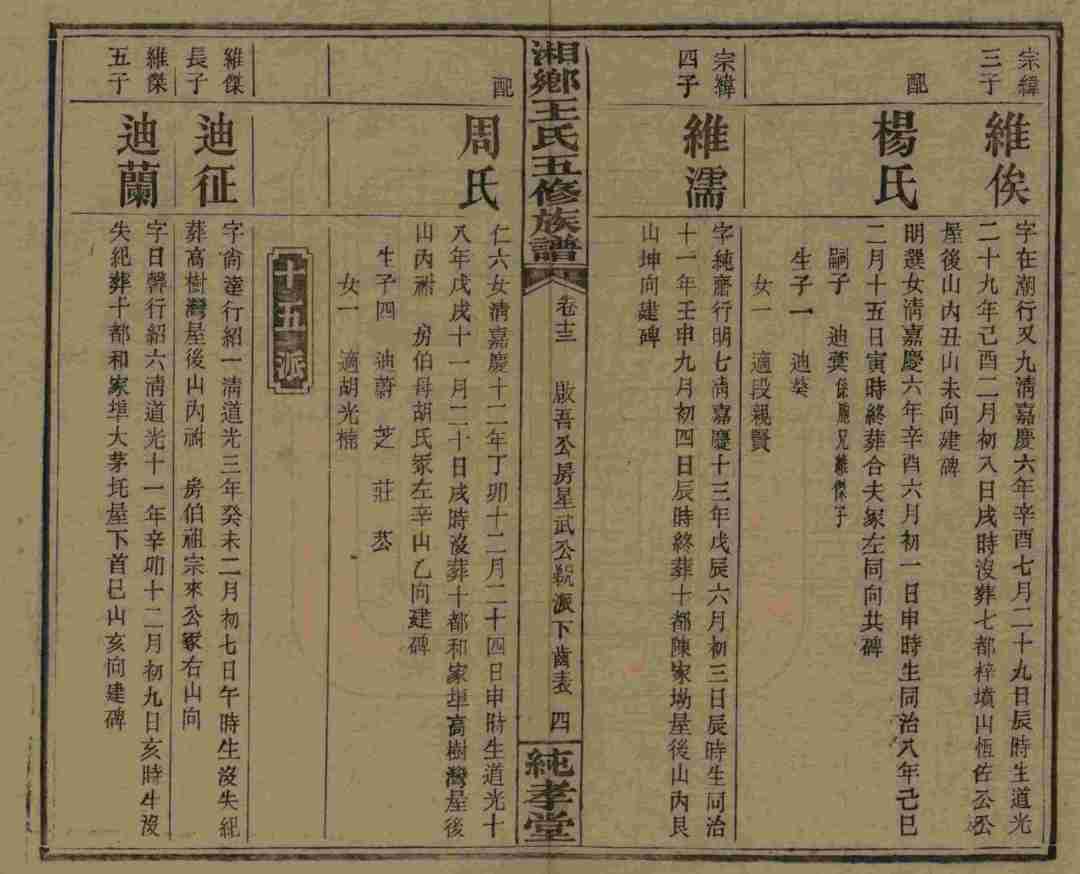 宗緯
三子
維俟
字在潮行又九淸嘉慶六年辛酉七月二十九日辰時生道光
二十九年己酉二月初八日戌時沒葬七都梓墳山恆佐公公
屋後山內丑山未向建碑
配
楊氏
明選女淸嘉慶六年辛酉六月初一日申時生同治八年己巳
二月十五日寅時終葬合夫冢左同向共碑
嗣子 迪蓂係胞兄維傑子
生子一 迪葵
女一 適段親賢
宗緯
四子
維濡
字純齋行明七淸嘉慶十三年戊辰六月初三日辰時生同治
十一年壬申九月初四日辰時終葬十都陳家坳屋後山內艮
山坤向建碑
湘鄉王氏五修族譜
卷十三
啟吾公房星武公
派下齒表
四
純孝堂
配
周氏
仁六女淸嘉慶十二年丁卯十二月二十四日申時生道光十
八年戊戌十一月二十日戌時沒葬十都和家埠高樹灣屋後
山內祔 房伯母胡氏冢左辛山乙向建碑
生子四 迪蔚 芝 莊
女一 適胡光楠
十五派
維傑
長子
迪征
字尙達行紹一淸道光三年癸未二月初七日午時生沒失紀
葬高樹灣屋後山內祔 房伯祖宗來公冢右山向
維傑
五子
迪蘭
字日聲行紹六淸道光十一年辛卯十二月初九日亥時生沒
失紀葬十都和家埠大茅坨屋下首巳山亥向建碑